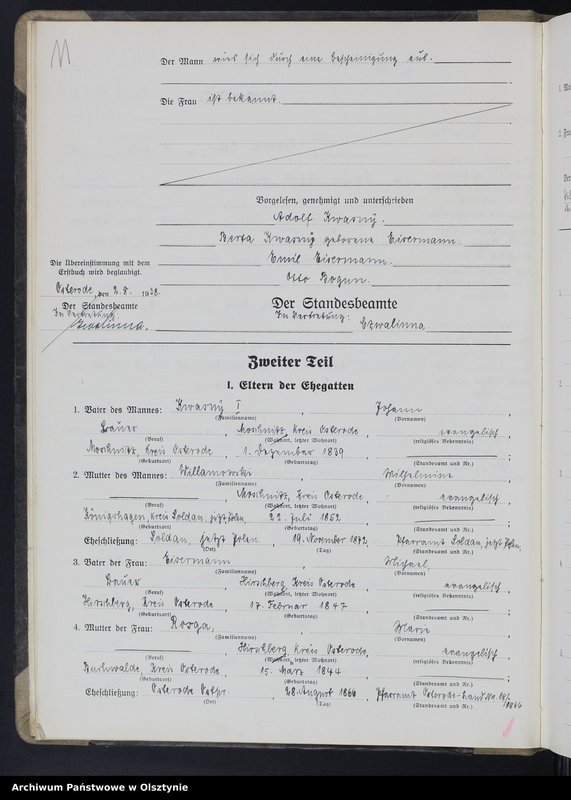 11
Der Mann wies sich durch eine Bescheinigung aus.
Die Frau ist bekannt.
Vorgelesen, genehmigt und unterschrieben
Adolf Kwasny.
Berta Kwasny geborene Eisermann.
Emil Eisermann.
Otto Bogun.
Die Übereinstimmung mit dem
Erstbuch wird beglaubigt.
Osterode, den 2. 8. 1938.
Der Standesbeamte
In Vertretung
Czwalinna.
Der Standesbeamte
In Vertretung:
Czwalinna.
Zweiter Teil
I. Eltern der Ehegatten
1. Vater des Mannes: Kwasny I, Johann,
(Familienname) (Vornamen)
Bauer, Moschnitz, Kreis Osterode, evangelisch,
(Beruf) (Wohnort, letzter Wohnort) (religiöses Bekenntnis)
Moschnitz, Kreis Osterode, 1. Dezember 1839;
(Geburtsort) (Geburtstag) (Standesamt und Nr.)
2. Mutter des Mannes: Willamowski, Wilhelmine,
(Familienname) (Vornamen)
Moschnitz, Kreis Osterode, evangelisch,
(Beruf) (Wohnort, letzter Wohnort) (religiöses Bekenntnis)
Königshagen Kreis Soldau, jetzt Polen, 22. Juli 1852;
(Geburtsort) (Geburtstag) (Standesamt und Nr.)
Eheschließung: Soldau, jetzt Polen, 19. November 1872, Pfarramt Soldau, jetzt Polen,
(Ort) (Tag) (Standesamt und Nr.)
3. Vater der Frau: Eisermann, Michael,
(Familienname) (Vornamen)
Bauer, Hirschberg, Kreis Osterode, evangelisch,
(Beruf) (Wohnort, letzter Wohnort) (religiöses Bekenntnis)
Hirschberg, Kreis Osterode, 17. Februar 1847;
(Geburtsort) (Geburtstag) (Standesamt und Nr.)
4. Mutter der Frau: Rosga, Marie
(Familienname) (Vornamen)
Hirschberg, Kreis Osterode, evangelisch
(Beruf) (Wohnort, letzter Wohnort) (religiöses Bekenntnis)
Buchwalde, Kreis Osterode, 15. März 1844;
(Geburtsort) (Geburtstag) (Standesamt und Nr.)
Eheschließung: Osterode Ostpr., 28. August 1866 Pfarramt Osterode-Land
(Ort) (Tag) (Standesamt und Nr.)
Archiwum Państwowe w Olsztynie